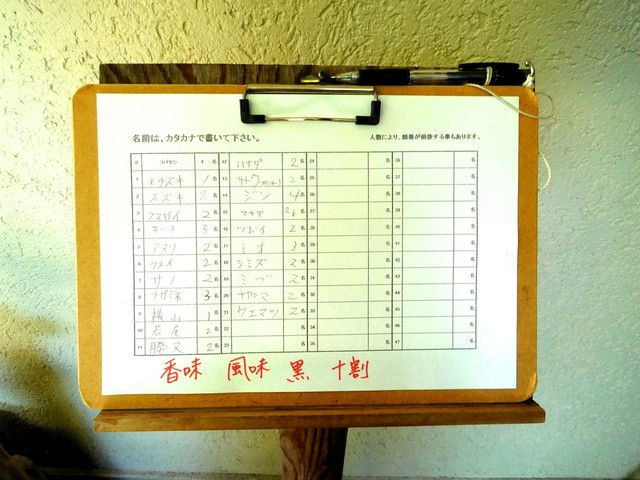 名前は、カタカナで書いて下さい。
人数により、順番が前後する事もあります。
0 コバヤシ 4名 12 ハナダ 2名 24 名 36 名
1 モチズキ 1名 13 サトウ 2名 25 名 37 名
2 スズキ 2名 14 ジン 4名 26 名 38 名
3 アマガイ 2名 15 マチダ 名 27 名 39 名
4 3名 16 ツボイ 2名 28 名 40 名
5 アマリ 2名 17 ミナ 名 29 名 41 名
6 2名 18 シミズ 2名 30 名 42 名
7 サノ 2名 19 ミヅ 2名 31 名 43 名
8 ナガミネ 3名 20 ナカジマ 2名 32 名 44 名
9 横山 1名 21 ウエマツ 2名 33 名 45 名
10 若尾 2名 22 名 34 名 46 名
11 勝又 2名 23 名 35 名 47 名
香味 風味 黒 十割